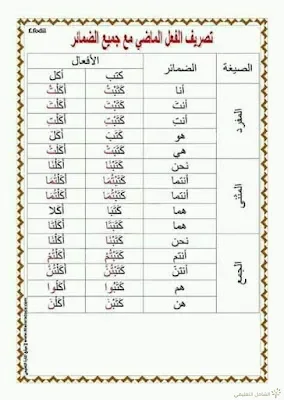 تصريف الفعل الماضي مع جميع الضمائر
الصيغة الضمائر الأفعال
كتب أكل
المفرد
أنا كَتَبْتُ أَكَلْتُ
أنتَ كَتَبْتَ أَكَلْتَ
أنتِ كَتَبْتِ أَكَلْتِ
هو كَتَبَ أَكَلَ
هي كَتَبَتْ أَكَلَتْ
المثنى
نحن كَتَبْنَا أَكَلْنَا
أنتما كَتَبْتُمَا أَكَلْتُمَا
أنتما كَتَبْتُمَا أَكَلْتُمَا
هما كَتَبَا أَكَلا
هما كَتَبَتَا أَكَلَتَا
الجمع
نحن كَتَبْنَا أَكَلْنَا
أنتم كَتَبْتُمْ أَكَلْتُمْ
أنتن كَتَبْتُنَّ أَكَلْتُنَّ
هم كَتَبُوا أَكَلُوا
هن كَتَبْنَ أَكَلْنَ